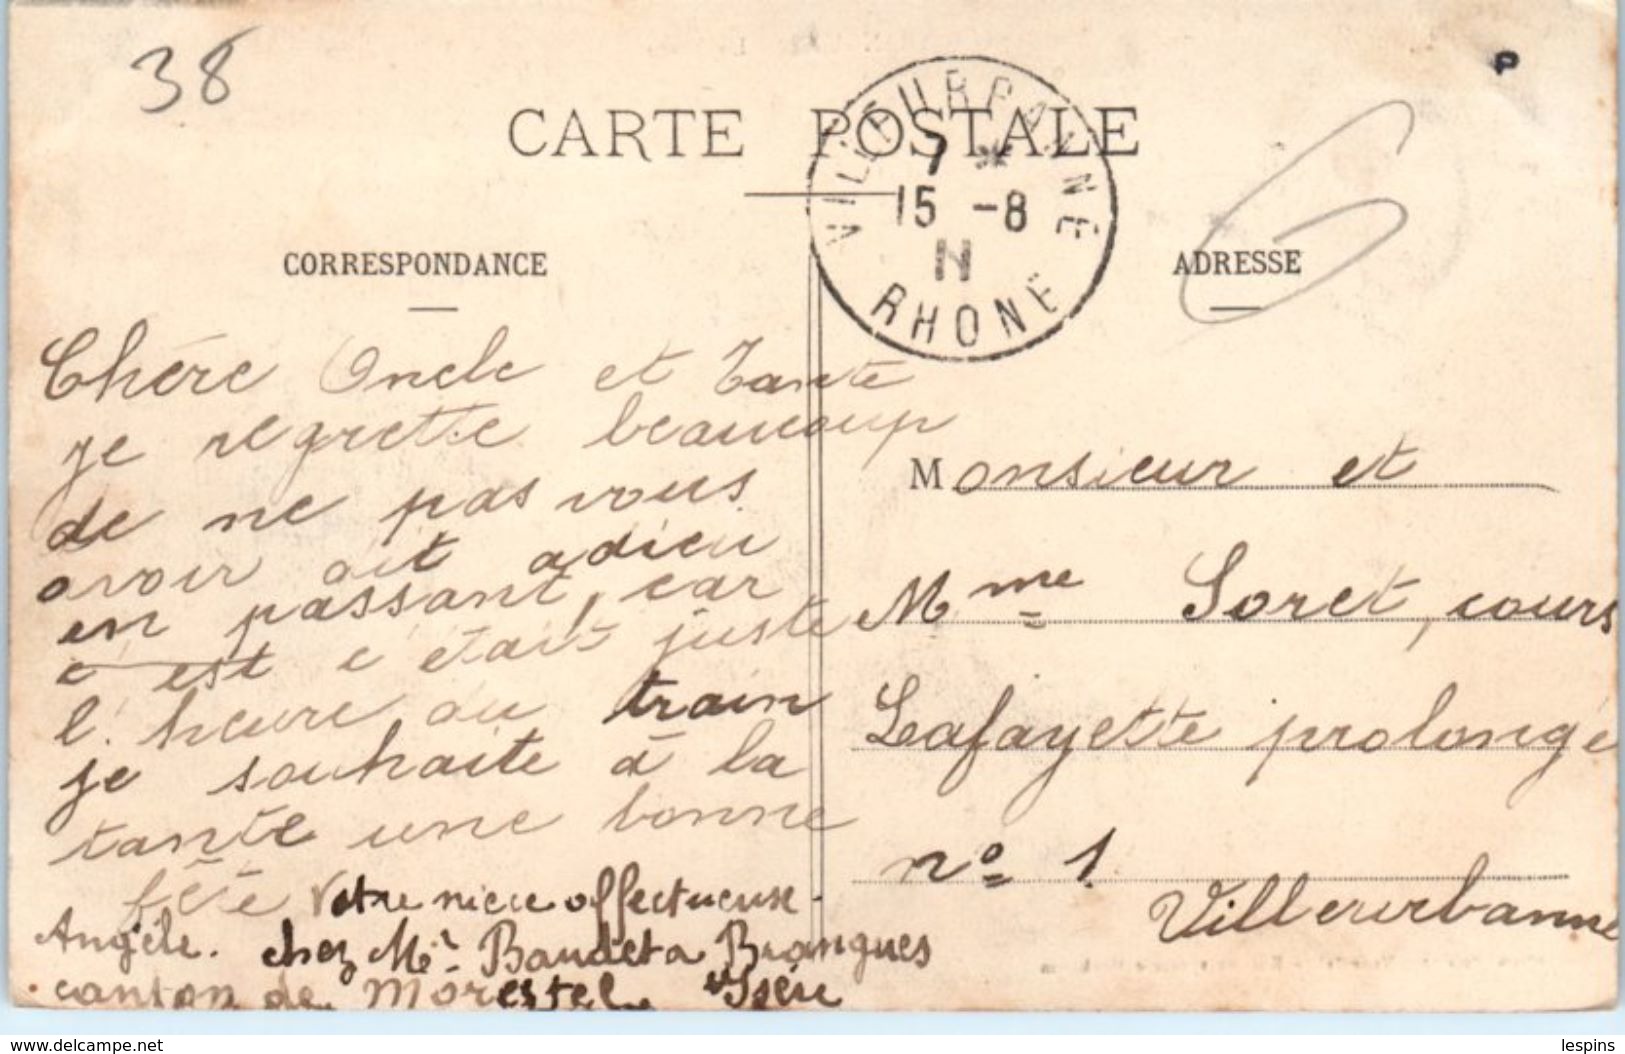 38
P
CARTE POSTALE
VILLEURBANNE
7 *
15 -8
11
RHONE
CORRESPONDANCE
ADRESSE
Chére Oncle et Tante
je regrette beaucoup
de ne pas vous
avoir dit adieu
en passant, car
c'est c'était juste
l'heure du train
je souhaite à la
tante une bonne
fête Votre niece affectueuse
Angèle. chez Mr Baudet a Brangues
canton de Morestel Isère
Monsieur et
Mme Soret, cours
Lafayette prolongé
no 1.
Villeurbanne
www.delcampe.net
lespins